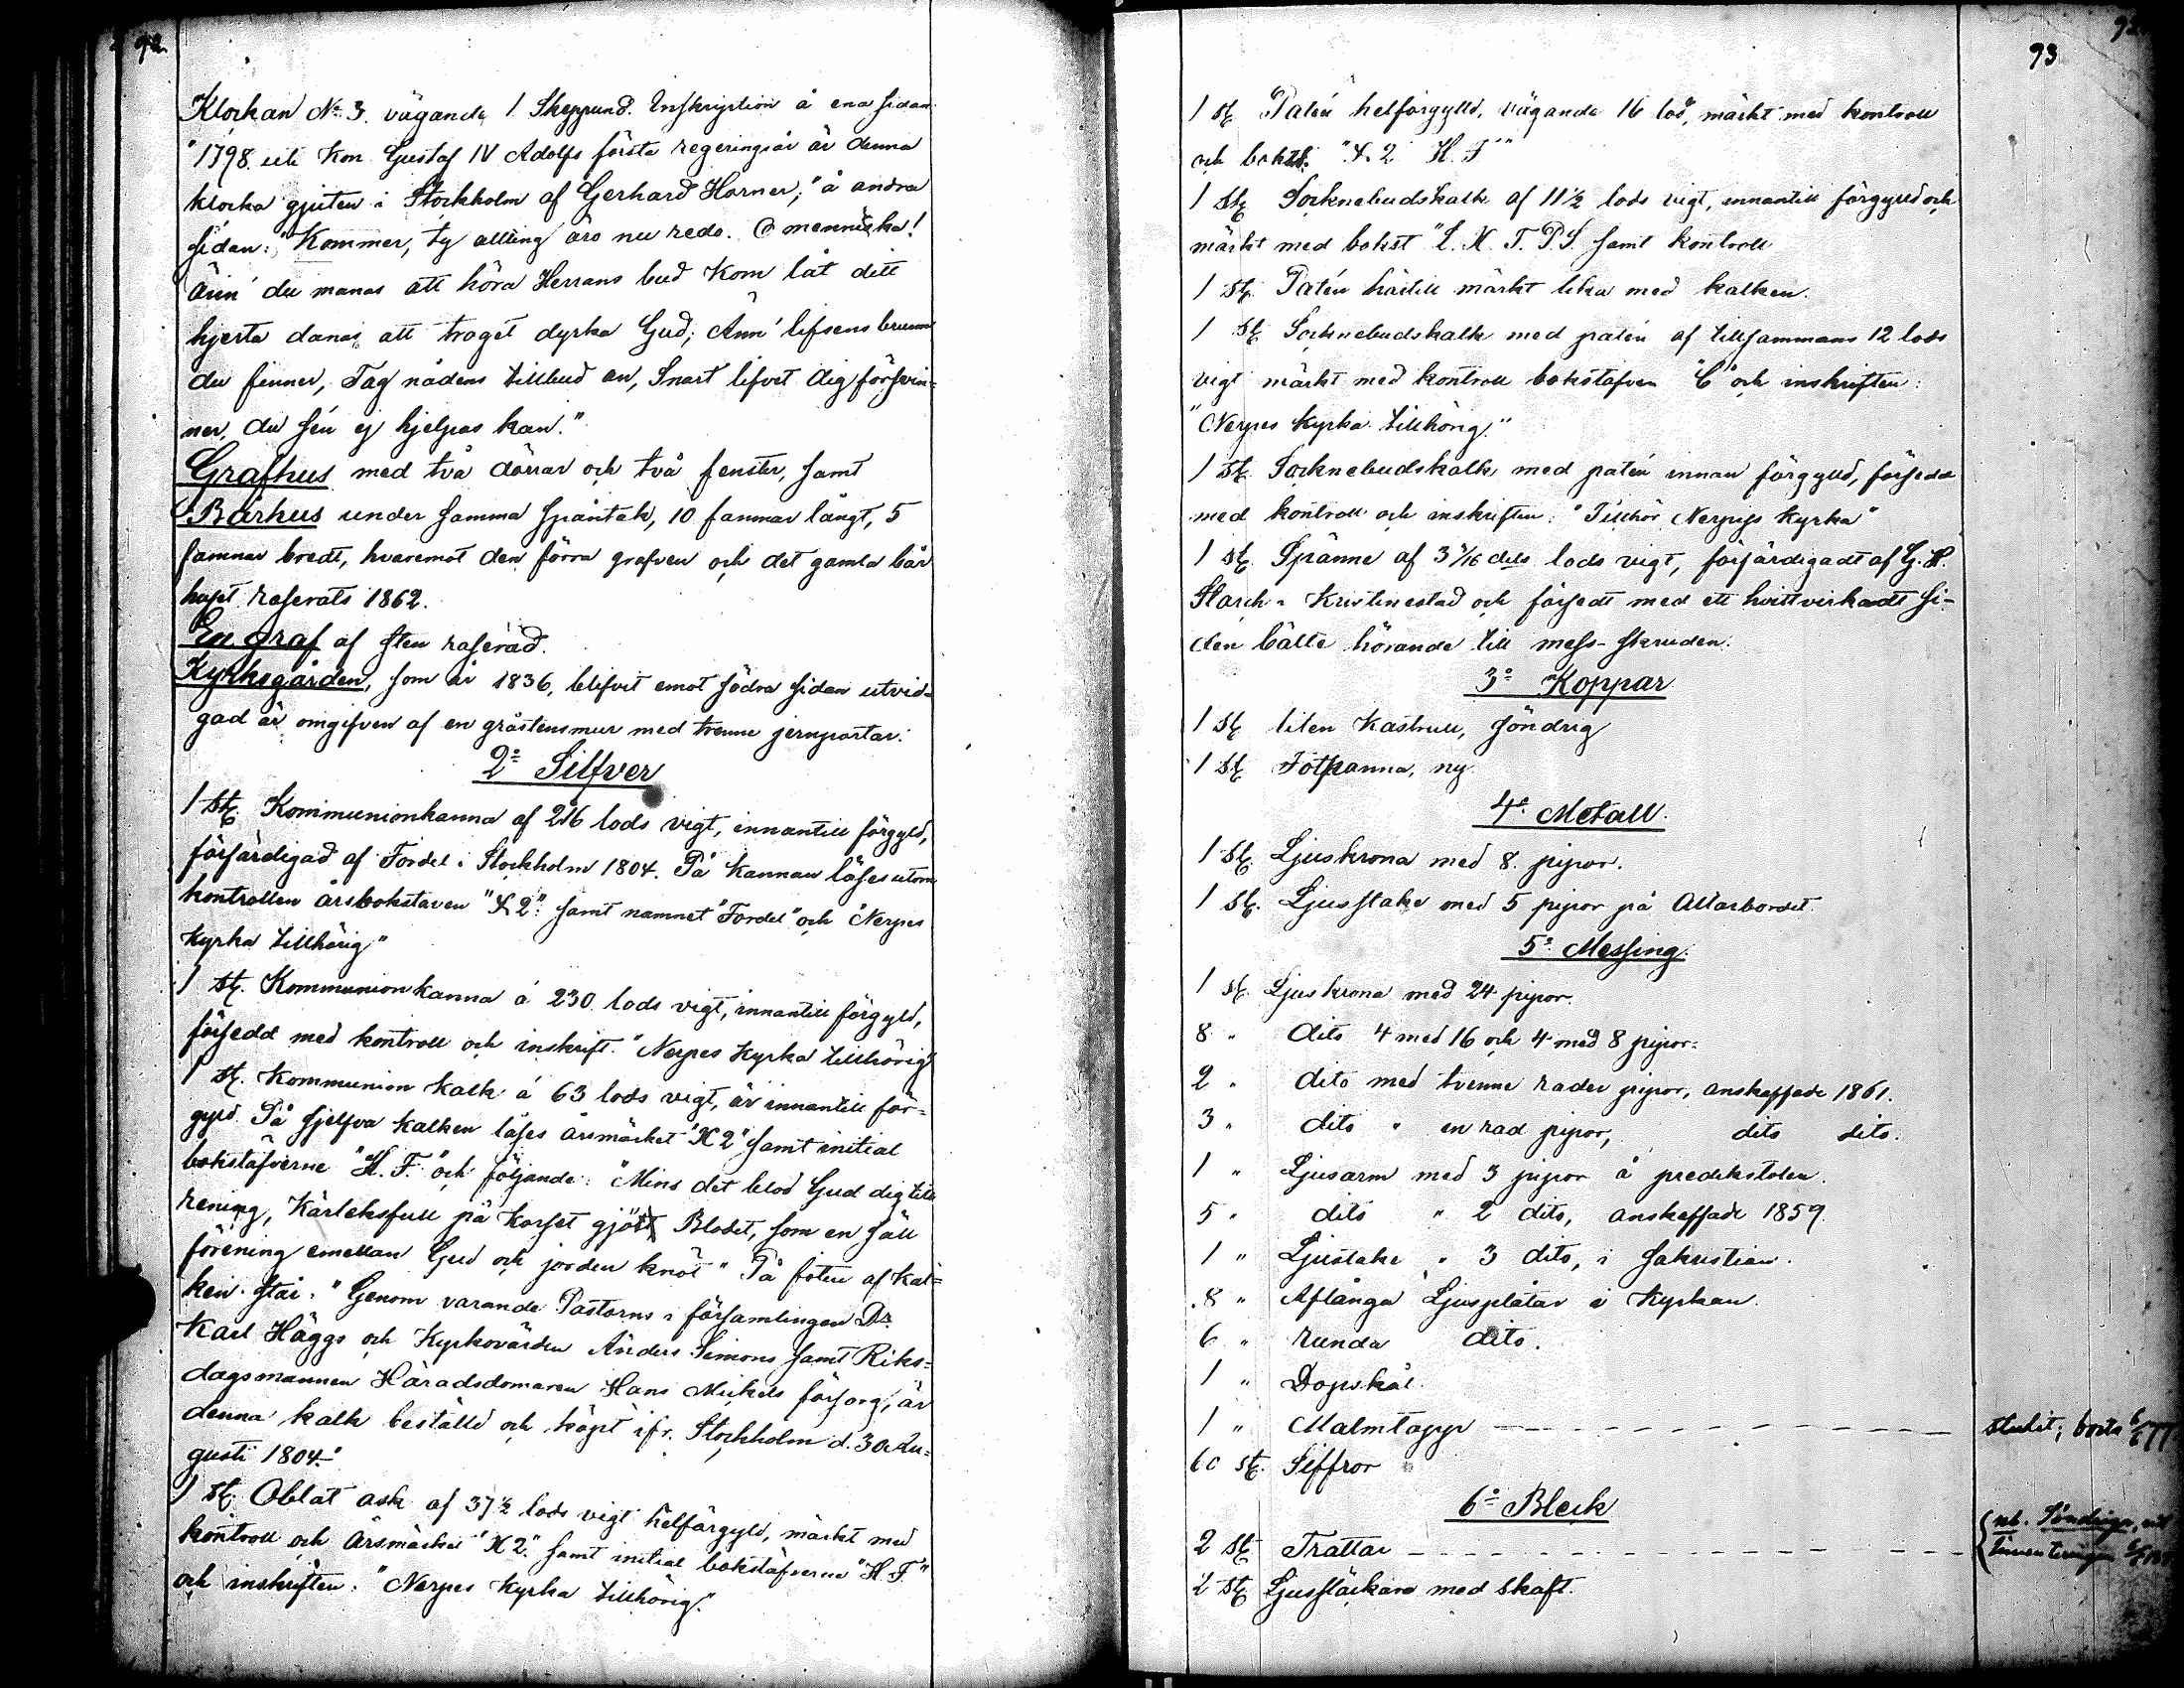 92.
Klockan № 3. vägande 1 Skeppund. Inskription å ena sidan
"1798 uti Kon. Gustaf IV Adolfs första regeringsår är denna
klocka gjuten i Stockholm af Gerhard Horner;" å andra
sidan: "Kommer, ty allting äro nu redo. O menniska!
Änn' du manas att höra Herrans bud Kom låt ditt
hjerta danas att troget dyrka Gud; Änn' lifsens brunn
du finner, Tag nådens tillbud an, Snart lifvet dig försvin=
ner, du sen ej hjelpas kan."
Grafhus med två dörrar och två fenster, samt
Bårhus under samma spåntak, 10 famnar långt, 5
famnar bredt, hvaremot den förra grafven och det gamla bår
huset raserats 1862.
En graf af sten raserad.
Kyrkogården, som år 1836, blifvit emot södra sidan utvid=
gad är omgifven af en gråstensmur med trenne jernportar.
2º Silfver
1 st. Kommunionkanna af 216 lods vigt, innantill förgyld,
förfärdigad af Fordel i Stockholm 1804. På kannan läses utom
kontrollen årsbokstaven "X2": samt namnet "Fordel" och "Nerpes
Kyrka tillhörig"
1 st. Kommunionkanna á 230 lods vigt, innantill förgyld,
försedd med kontroll och inskrift. "Nerpes Kyrka tillhörig"
1 st. Kommunion kalk á 63 lods vigt, är innantill för=
gyld På sjelfva kalken läses årsmärket "X2" samt initial
bokstäfverne "H. F." och följande: "Mins det blod Gud dig till
rening, Kärleksfull på korset gjöt Blodet, som en säll
förening emellan Gud och jorden knöt" På foten af kal=
ken står: "Genom varande Pastorns i församlingen Dr.
Karl Häggs och Kyrkovärden Anders Simons samt Riks=
dagsmannen Häradsdomaren Hans Mickels försorg, är
denna kalk beställd och köpt ifr. Stockholm d. 30 Au=
gusti 1804."
1 st. Oblat ask af 37½ lods vigt helförgyld, märkt med
kontroll och Årsmärket "X2" samt initial bokstäfverne "H F."
och inskriften: "Nerpes Kyrka tillhörig."
93
1 st Patén helförgylld, vägande 16 lod, märkt med kontroll
och bokst. "X 2 H. F"
1 st Socknebudskalk af 11½ lods vigt, innantill förgylld och
märkt med bokst "L. K. T. P. S. samt kontroll
1 st. Patén härtill märkt lika med kalken.
1 st Socknebudskalk med patén af tillsammans 12 lods
vigt märkt med kontroll bokstafven "C" och inskriften:
"Nerpes kyrka tillhörig."
1 st. Socknebudskalk med patén innan förgylld, försedd
med kontroll och inskriften: "Tillhör Nerpes Kyrka"
1 st. Spänne af 3 7/16 dels lods vigt, förfärdigadt af G. H.
Starck i Kristinestad och försedt med ett hvitt virkadt si-
den bälte hörande till mess-skruden.
3º Koppar
1 st liten Kastrull, söndrig
1 st Fotpanna, ny.
4º Metall.
1 st. Ljuskrona med 8. pipor.
1 st. Ljusstake med 5 pipor på Altarbordet.
5º Messing.
1 st. Ljuskrona med 24 pipor.
8 " dito 4 med 16 och 4 med 8 pipor.
2 " dito med tvenne rader pipor, anskaffade 1861.
3 " dito " en rad pipor, dito dito.
1 " Ljusarm med 3 pipor å predikstolen.
5 " dito " 2 dito, anskaffade 1859.
1 " Ljustake " 3 dito, i sakristian.
8 " Aflånga Ljusplåtar i Kyrkan.
6 " runda dito.
1 " Dopskål.
1 " Malmtapp stulit; borta
60 st. Siffror
6º Bleck
2 st Trattar nb. Söndriga, vid
2 st Ljussläckare med skaft.